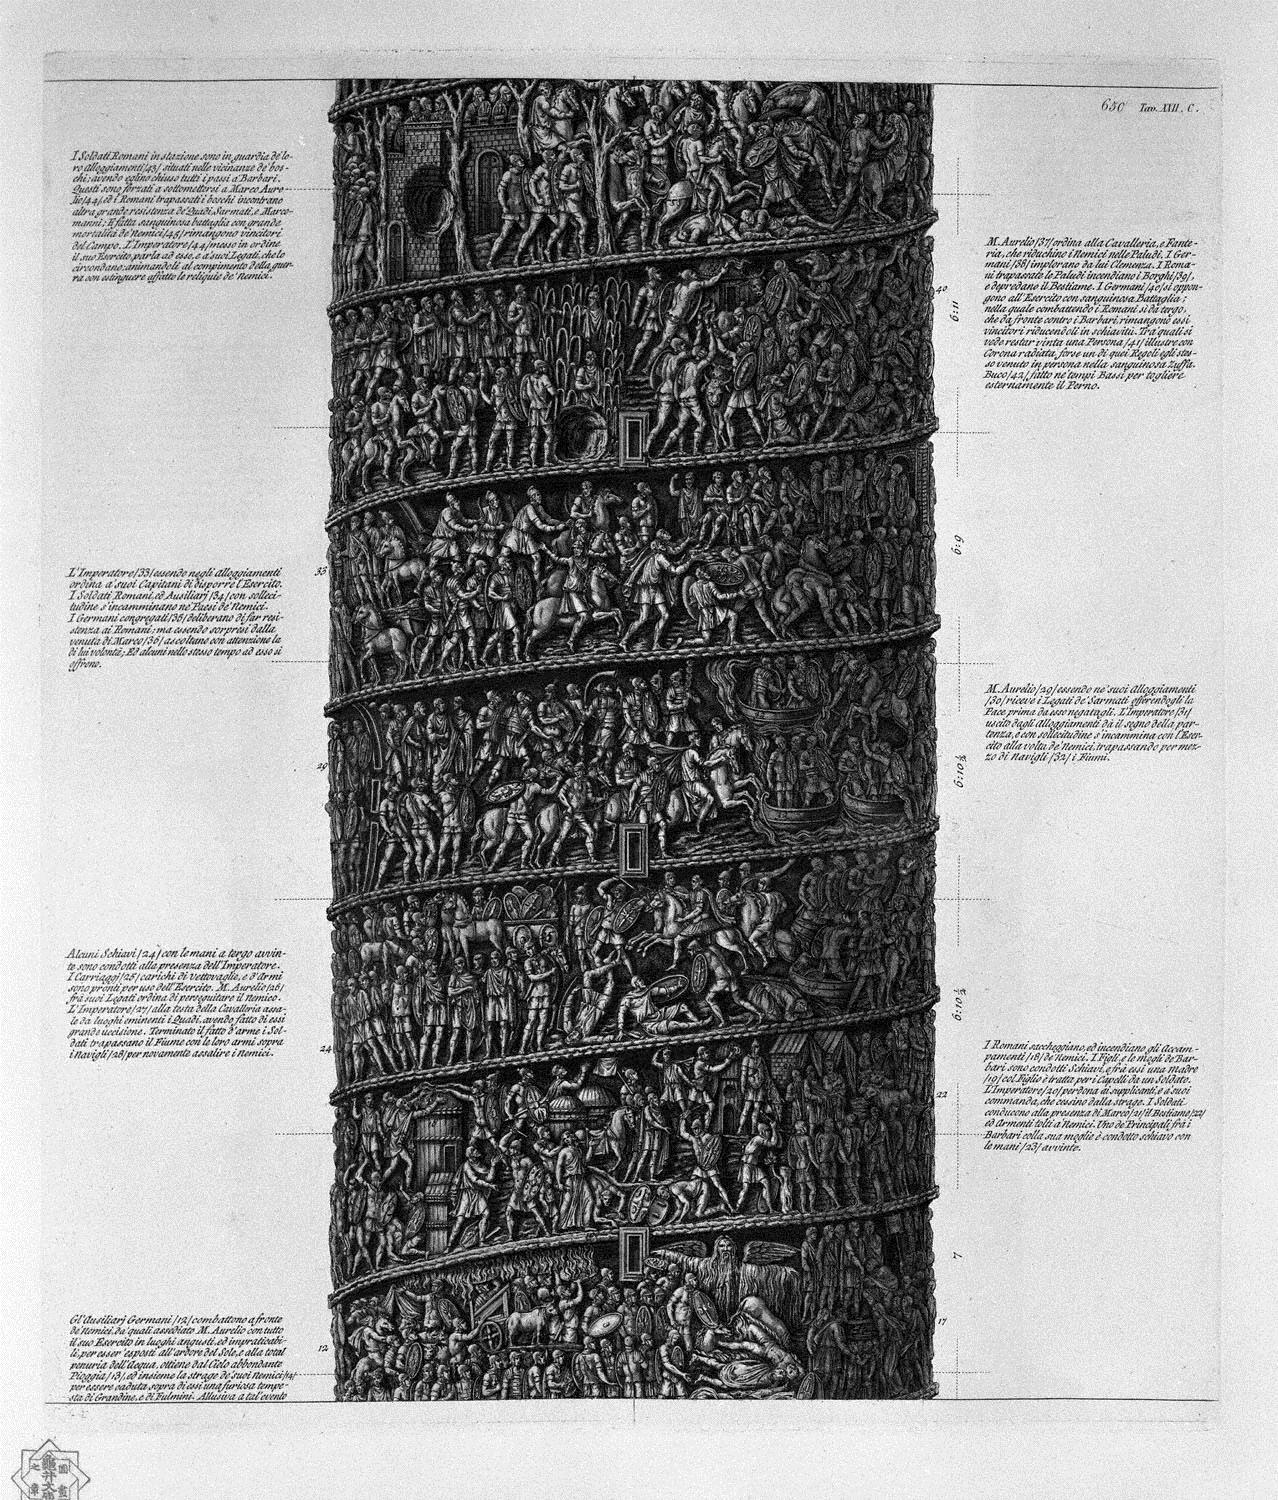 650 Tav. XVII. C.
I Soldati Romani in stazione sono in guardia de' lo-
ro alloggiamenti /43/ situati nelle vicinanze de' bos-
chi; avendo eglino chiuso tutti i passi a' Barbari.
Questi sono forzati a sottomettersi a Marco Aure-
lio /44/, ed i Romani trapassati i boschi incontrano
altra grande resistenza de' Quadi, Sarmati, e Marco-
manni; E fatta sanguinosa battaglia con grande
mortalità de' Nemici /45/ rimangono vincitori
del Campo. L'Imperatore /44/ messo in ordine
il suo Esercito parla ad esso, e a' suoi Legati, che lo
circondano; animandoli al compimento della guer-
ra con estinguere affatto le reliquie de' Nemici.
M. Aurelio /37/ ordina alla Cavalleria, e Fante-
ria, che riduchino i Nemici nelle Paludi. I Ger-
mani /38/ implorano da lui Clemenza. I Roma-
ni trapassate le Paludi incendiano i Borghi /39/,
e depredano il Bestiame. I Germani /40/ si oppon-
gono all'Esercito con sanguinosa Battaglia;
nella quale combattendo i Romani sì da tergo,
che da fronte contro i Barbari, rimangono essi
vincitori riducendoli in schiavitù. Tra quali si
vede restar vinta una Persona /41/ illustre con
Corona radiata, forse un di quei Regoli egli stes-
so venuto in persona nella sanguinosa Zuffa.
Buco /42/ fatto ne' tempi Bassi per togliere
esternamente il Perno.
40
6:11
6:9
L'Imperatore /33/ essendo negli Alloggiamenti
ordina a' suoi Capitani di disporre l'Esercito.
I Soldati Romani, ed Ausiliarj /34/ con solleci-
tudine s'incamminano ne' Paesi de' Nemici.
I Germani congregati /35/ deliberano di far resi-
stenza ai Romani; ma essendo sorpresi dalla
venuta di Marco /36/ ascoltano con attenzione la
di lui volontà; Ed alcuni nello stesso tempo ad esso si
offrono.
33
M. Aurelio /29/ essendo ne' suoi Alloggiamenti
/30/ riceve i Legati de' Sarmati offerendogli la
Pace prima da esso negatagli. L'Imperatore /31/
uscito dagli Alloggiamenti dà il segno della par-
tenza, e con sollecitudine s'incammina con l'Eser-
cito alla volta de' Nemici, trapassando per mez-
zo di Navigli /32/ i Fiumi.
29
6:10½
Alcuni Schiavi /24/ con le mani a tergo avvin-
te sono condotti alla presenza dell'Imperatore.
I Carriaggi /25/ carichi di vettovaglie, e d'Armi
sono pronti per uso dell'Esercito. M. Aurelio /26/
frà suoi Legati ordina di perseguitare il Nemico.
L'Imperatore /27/ alla testa della Cavalleria assa-
le da luoghi eminenti i Quadi, avendo fatto di essi
grande uccisione. Terminato il fatto d'arme i Sol-
dati trapassano il Fiume con le loro armi sopra
i Navigli /28/ per novamente assalire i Nemici.
24
6:10½
I Romani saccheggiano, ed incendiano gli Accam-
pamenti /18/ de' Nemici. I Figli, e le mogli de' Bar-
bari sono condotti Schiavi, e frà essi una madre
/19/ col Figlio è tratta per i Capelli da un Soldato.
L'Imperatore /20/ perdona ai supplicanti, e a' suoi
commanda, che cessino dalla strage. I Soldati
conducono alla presenza di Marco /21/ il Bestiame, /22/
ed Armenti tolti a' Nemici. Uno de' Principali frà i
Barbari colla sua moglie è condotto schiavo con
le mani /23/ avvinte.
22
7
17
12
Gl'Ausiliarj Germani /12/ combattono a fronte
de' nemici, da' quali assediato M. Aurelio con tutto
il suo Esercito in luoghi angusti, ed impraticabi-
li, per esser esposti all'ardore del Sole, e alla total
penuria dell'Acqua, ottiene dal Cielo abbondante
Pioggia /13/, ed insieme la strage de' suoi Nemici /14/
per essere caduta sopra di essi una furiosa tempe-
sta di Grandine, e di Fulmini. Allusiva a tal evento